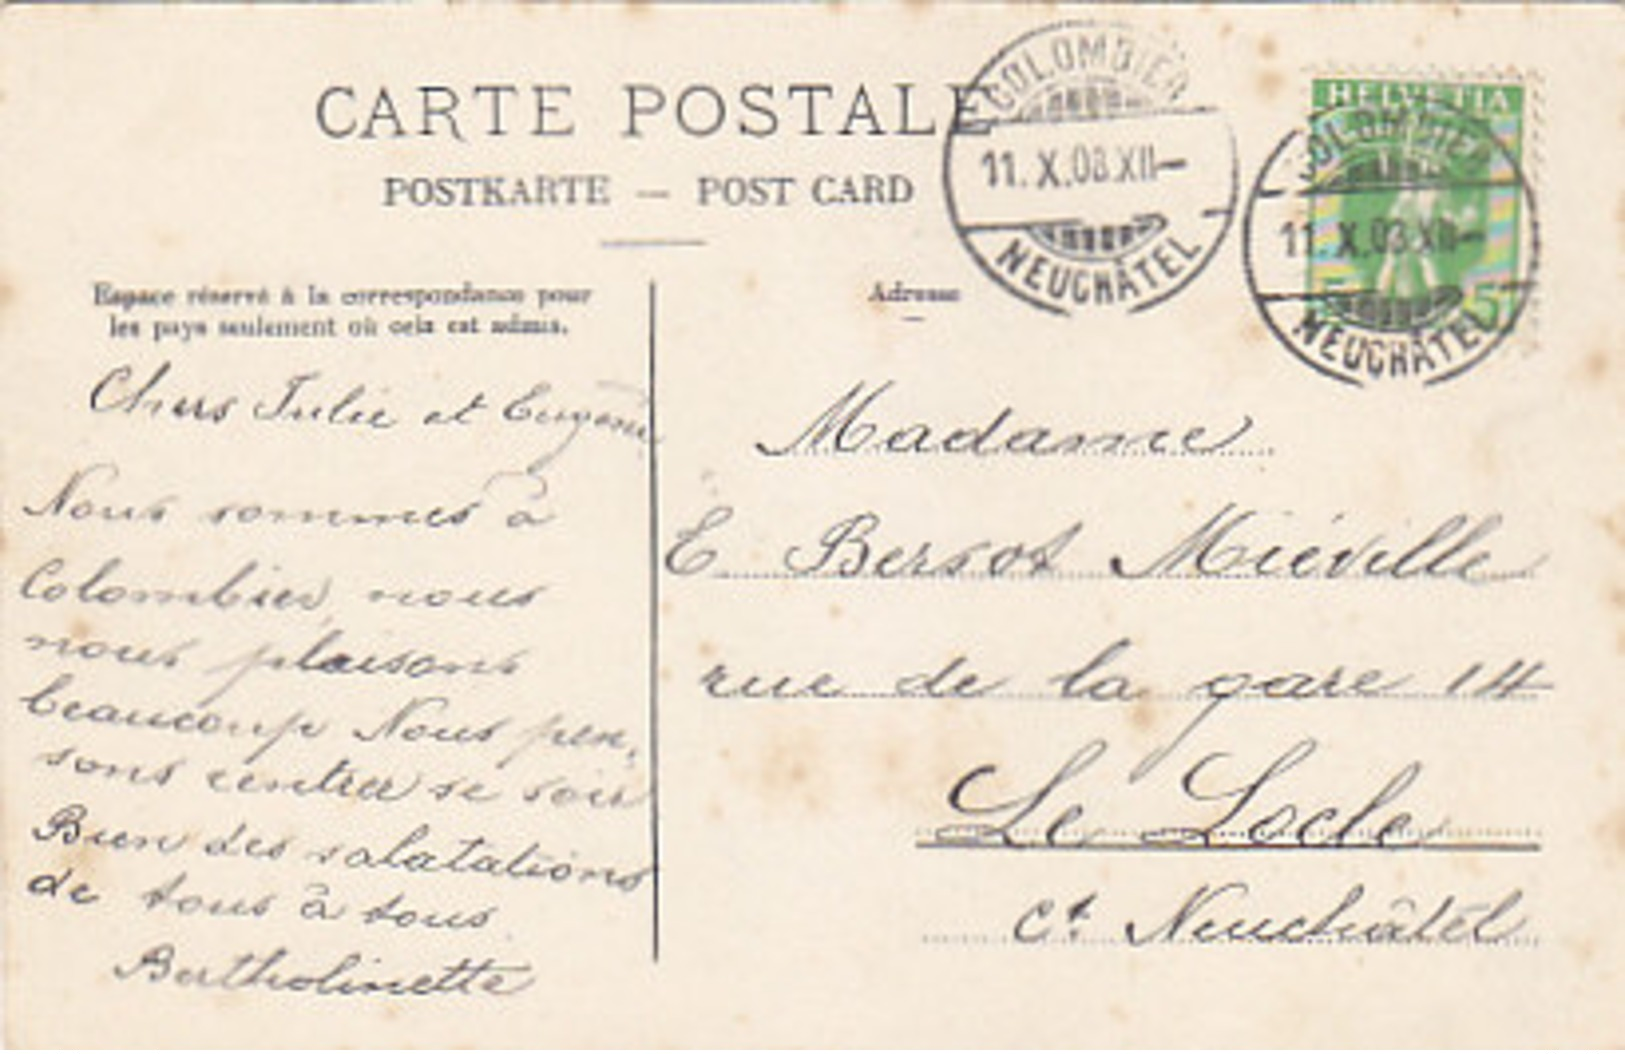 CARTE POSTALE
POSTKARTE — POST CARD
Espace réservé à la correspondance pour
les pays seulement où cela est admis.
Adresse
COLOMBIER
11. X. 08. XII—
NEUCHÂTEL
HELVETIA
5
COLOMBIER
11. X. 08 XII—
NEUCHÂTEL
Chers Julie et Eugène
Nous sommes à
Colombier, nous
nous plaisons
beaucoup Nous pen,
sons rentrer se soir
Bien des salatations
de tous à tous
Bertholinette
Madame
E Bersot Miéville
rue de la gare 14
Le Locle
Ct Neuchâtel